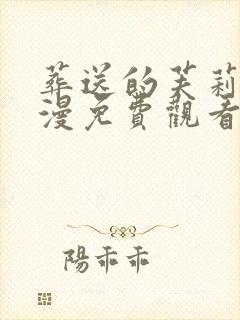 葬送的芙莉
漫免費觀看
陽乖乖